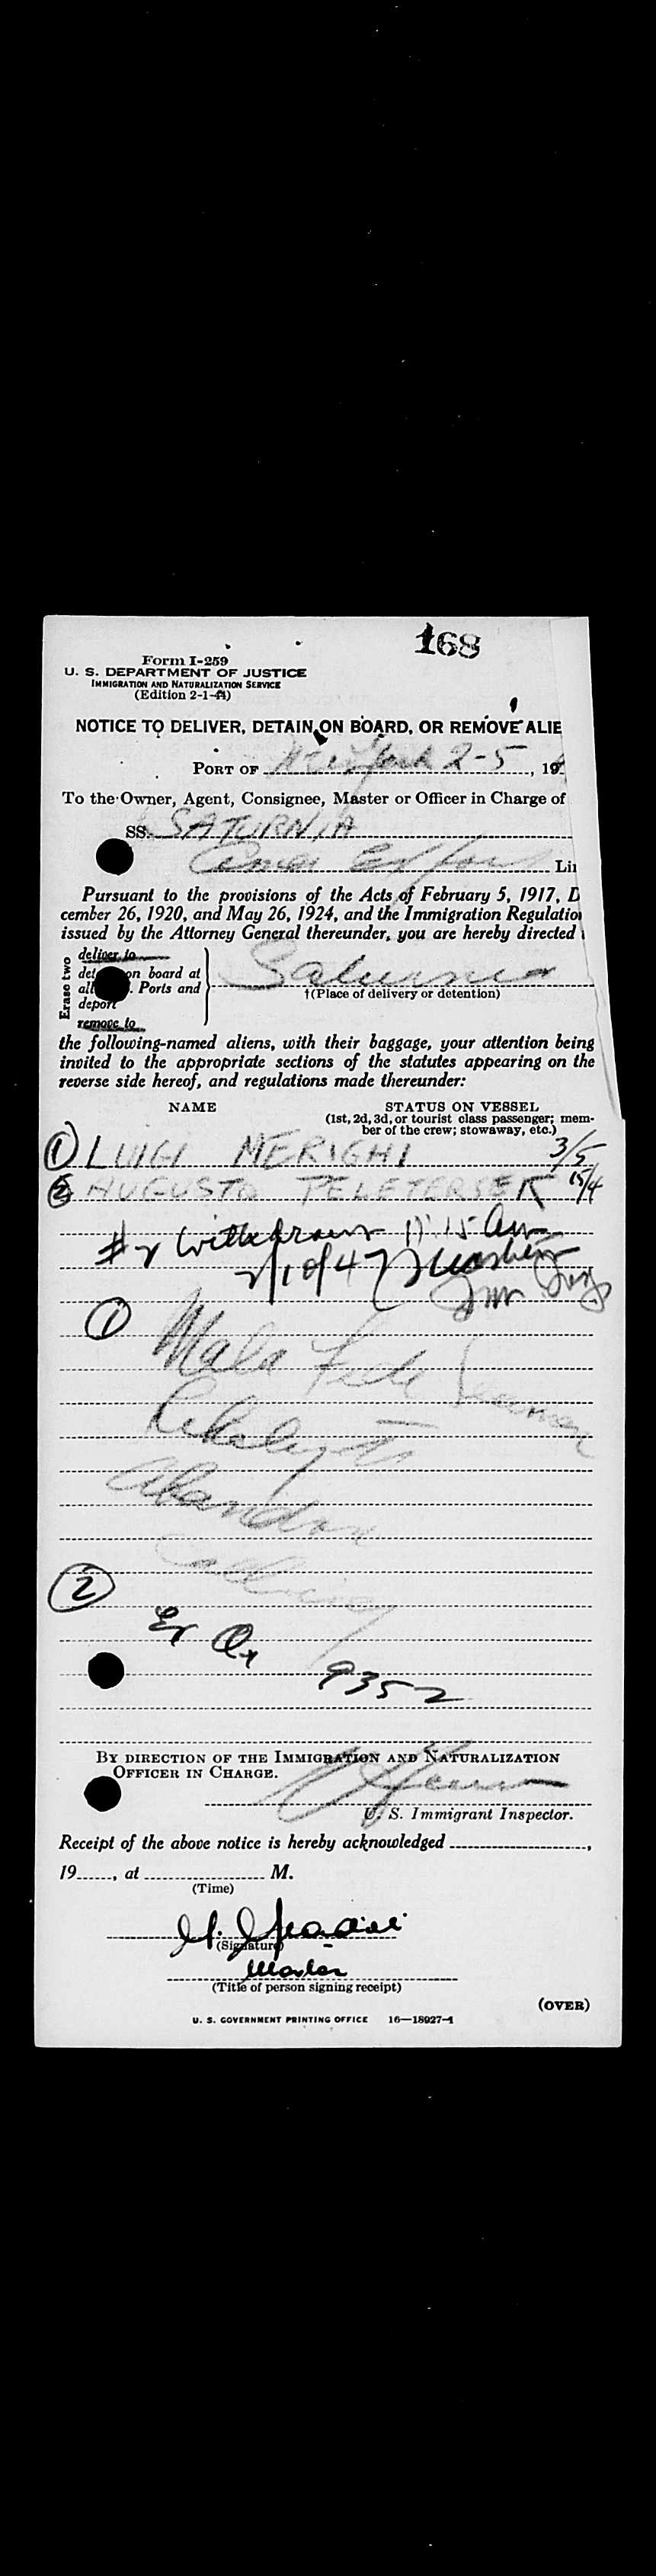 168
Form I-259
U. S. DEPARTMENT OF JUSTICE
IMMIGRATION AND NATURALIZATION SERVICE
(Edition 2-1-44)
NOTICE TO DELIVER, DETAIN ON BOARD, OR REMOVE ALIE
PORT OF New York 2-5, 19
To the Owner, Agent, Consignee, Master or Officer in Charge of
SS. SATURNIA
Amer Export Li
Pursuant to the provisions of the Acts of February 5, 1917, D
cember 26, 1920, and May 26, 1924, and the Immigration Regulatio
issued by the Attorney General thereunder, you are hereby directed
Erase two
deliver to
on board at
Ports and
deport
remove to
Saturnia
†(Place of delivery or detention)
the following-named aliens, with their baggage, your attention being
invited to the appropriate sections of the statutes appearing on the
reverse side hereof, and regulations made thereunder:
NAME STATUS ON VESSEL
(1st, 2d, 3d, or tourist class passenger; mem-
ber of the crew; stowaway, etc.)
① LUIGI MERIGHI 3/5
② AUGUSTO 15/4
#2 Withdrawn 11:15 am
2/10/47
①
Mala Fide Seaman
Likely to
Abandon
Calling
②
Ex Qx
9352
BY DIRECTION OF THE IMMIGRATION AND NATURALIZATION
OFFICER IN CHARGE.
U. S. Immigrant Inspector.
Receipt of the above notice is hereby acknowledged ,
19 , at M.
(Time)
(Signature)
Master
(Title of person signing receipt)
(OVER)
U. S. GOVERNMENT PRINTING OFFICE 16—18927-1